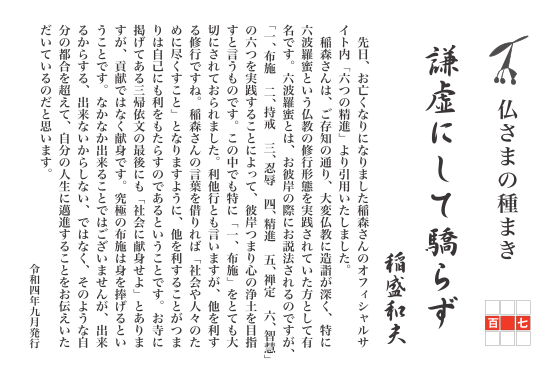 仏さまの種まき
百七
謙虚にして驕らず
稲盛和夫
先日、お亡くなりになりました稲森さんのオフィシャルサ
イト内「六つの精進」より引用いたしました。
稲森さんは、ご存知の通り、大変仏教に造詣が深く、特に
六波羅蜜という仏教の修行形態を実践されていた方として有
名です。六波羅蜜とは、お彼岸の際にお説法されるのですが、
「一、布施　二、持戒　三、忍辱　四、精進　五、禅定　六、智慧」
の六つを実践することによって、彼岸つまり心の浄土を目指
すと言うものです。この中でも特に「一、布施」をとても大
切にされておられました。利他行とも言いますが、他を利す
る修行ですね。稲森さんの言葉を借りれば「社会や人々のた
めに尽くすこと」となりますように、他を利することがつま
りは自己にも利をもたらすのであるということです。お寺に
掲げてある三帰依文の最後にも「社会に献身せよ」とありま
すが、貢献ではなく献身です。究極の布施は身を捧げるとい
うことです。なかなか出来ることではございませんが、出来
るからする、出来ないからしない、ではなく、そのような自
分の都合を超えて、自分の人生に邁進することをお伝えいた
だいているのだと思います。
令和四年九月発行